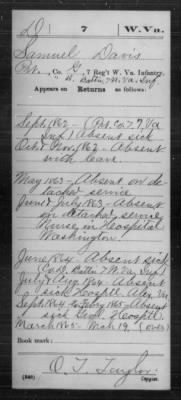 D | 7 | W. Va.
Samuel Davis
Pvt., Co. G, 7 Reg't W. Va. Infantry.
" " Battn 7 W. Va. Inf
Appears on Returns as follows:
Sept. 1862 – (Pvt. Co. 7 Va
Inf.) Absent sick
Oct & Nov. 1862 – Absent
with leave.
May 1863 – Absent on de-
tached service
June & July 1863 – Absent
on detached service
Nurse in Hospital
Washington.
June 1864 – Absent sick
Battn 7 W. Va. Inf.)
July & Aug 1864 – Absent
sick Hosptl. Alex. Va
Sept. 1864 to Feby 1865 – Absent
sick Genl. Hosptl.
March 1865 – Mch 19, (over)
Book mark:
O. T. Taylor
(546) Copyist.